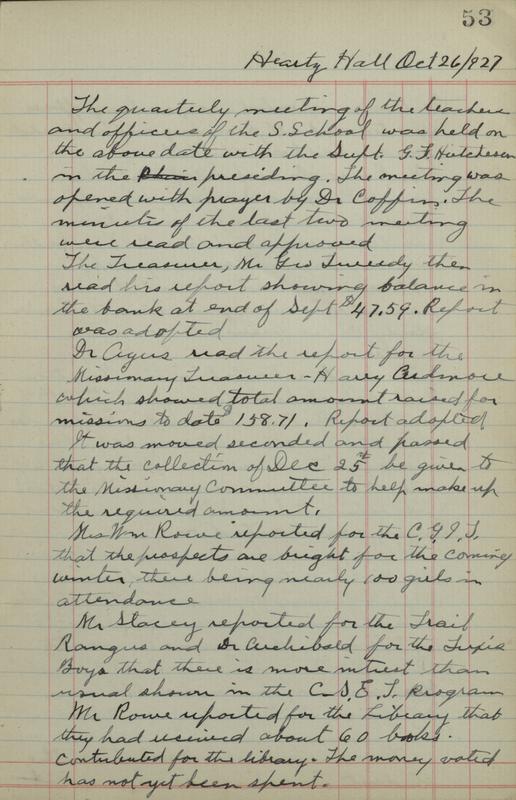 53
Hearty Hall Oct 26/927
The quarterly meeting of the teachers
and officers of the S. School was held on
the above date with the Supt. G. F. Hutcheson
in the Chair presiding. The meeting was
opened with prayer by Dr Coffin. The
minutes of the last two meeting
were read and approved
The Treasurer, Mr Geo Tweedy then
read his report showing balance in
the bank at end of Sept $47.59. Report
was adopted
Dr Agus read the report for the
Missionary Treasurer - Harry Ardmore
which showed total amount raised for
missions to date $158.71. Report adopted
It was moved seconded and passed
that the collection of Dec 25th be given to
the Missionary Committee to help make up
the required amount.
Mrs Wm Rowe reported for the C. G. I. T.
that the prospects are bright for the coming
winter, there being nearly 100 girls in
attendance
Mr Stacey reported for the Trail
Rangers and Dr Archibald for the Tuxis
Boys that there is more intrest than
usual shown in the C. S. E. T. program
Mr Rowe reported for the Library that
they had received about 60 books.
contributed for the library. The money voted
has not yet been spent.